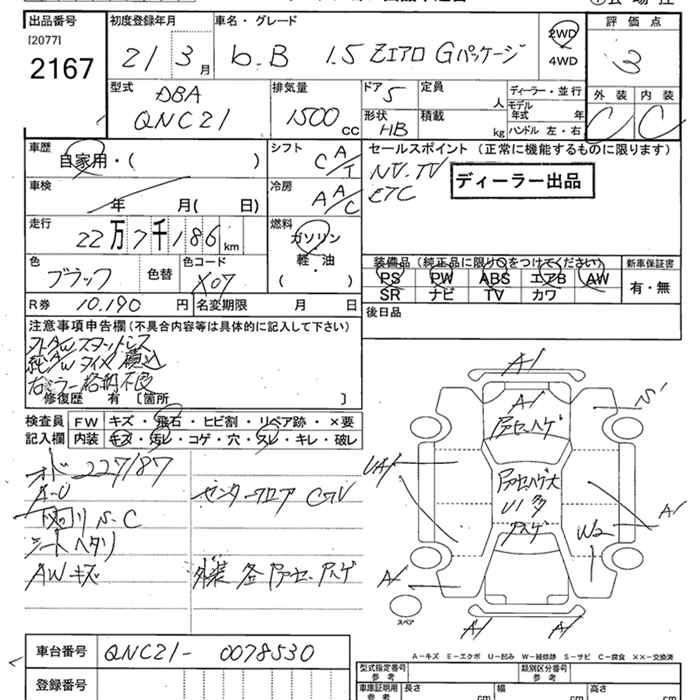 出品番号 初度登録年月 車名・グレード 評価点
[2077]
2167 21 3月 b.B 1.5 Zエアロ Gパッケージ 2WD 4WD 3
型式 排気量 ドア 定員 ディーラー・並行 外装 内装
DBA 5 人 モデル年式 年 C C
QNC21 1500cc 形状 積載 ハンドル 左・右
HB kg
車歴 シフト セールスポイント (正常に機能するものに限ります)
自家用・( ) C A/T NV.TV
車検 冷房 ETC ディーラー出品
年 月(日) AA/C
走行 燃料
22万7千186km ガソリン
軽・油 装備品 (純正品に限り○をつけてください) 新車保証書
色 色替 色コード ( ) PS PW ABS エアB AW 有・無
ブラック X07 SR ナビ TV カワ
R券 10.190円 名変期限 月 日 後日品
注意事項申告欄(不具合内容等は具体的に記入して下さい)
外AWスタットレス
純AWタイヤ積込
右ミラー格納不良
修復歴 有 [箇所 ]
検査員 FW キズ・飛石・ヒビ割・リペア跡・×要
記入欄 内装 キズ・汚レ・コゲ・穴・スレ・キレ・破レ
オド 227187
A-U センターフロア CWV
リ S-C
シートヘタリ
AWキズ 外装 各
A1
A1 S1
UA1
U1 多
A1
W2
A1
スペア A1 A1
A-キズ E-エクボ U-凹み W-補修跡 S-サビ C-腐食 ××-交換済
車台番号 QNC21-0078530 型式指定番号 参考 類別区分番号 参考
登録番号 車庫証明用 参考 長さ cm 幅 cm 高さ cm